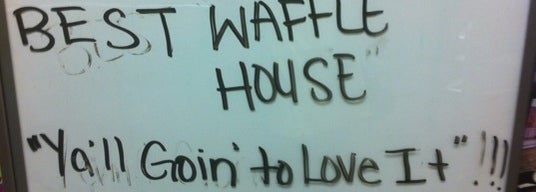 BEST WAFFLE
HOUSE"
"Ya'll Goin' to Love It" !!!